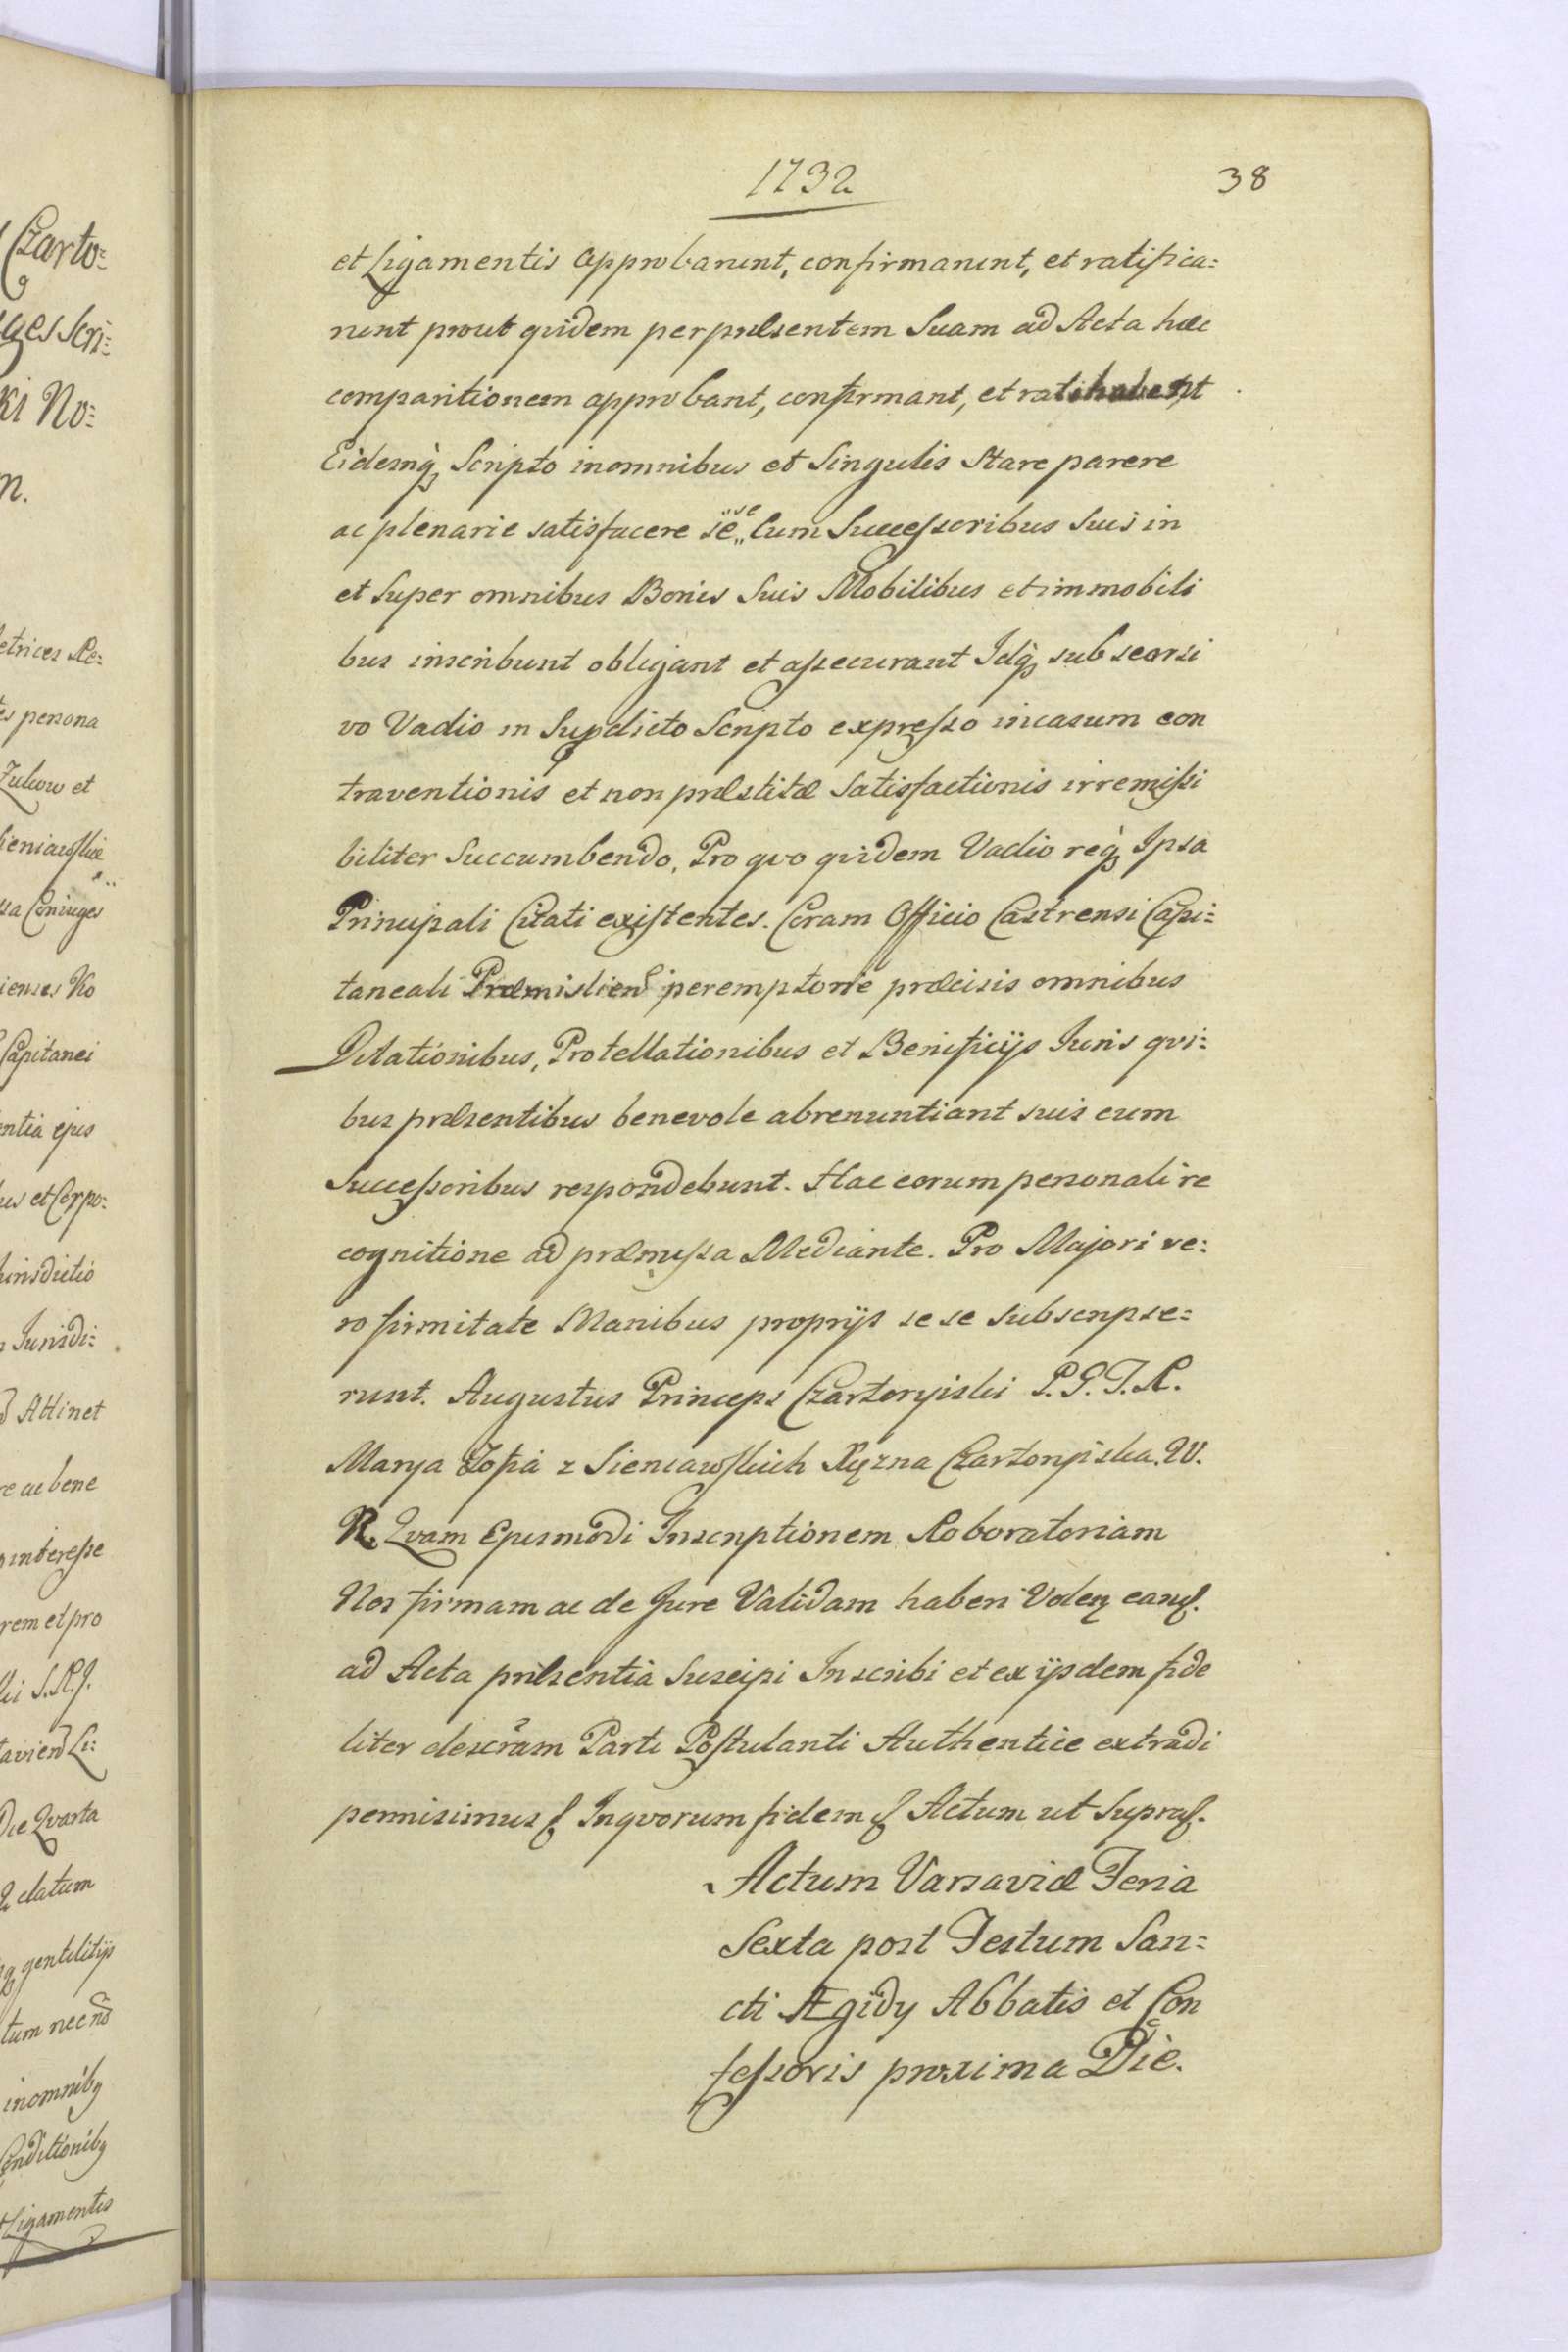 1732
38
et Ligamentis approbarunt, confirmarunt, et ratifica:
runt prout quidem per præsentem Suam ad Acta hæc
comparitionem approbant, confirmant, et ratihabent
Eidemq́ꝫ Scripto inomnibus et Singulis Stare parere
ac plenarie satisfacere se„se Cum Successoribus Suis in
et Super omnibus Bonis Suis Mobilibus et immobili
bus inscribunt obligant et assecurant Idq́ꝫ sub searsi
vo Vadio in Supdicto Scripto expresso incasum con
traventionis et non præstitæ Satisfactionis irremissi
biliter Succumbendo, Pro qvo qvidem Vadio req́ꝫ Ipsa
Principali Citati existentes. Coram Officio Castrensi Capi:
taneali Præmislien peremptorie præcisis omnibus
Dilationibus, Protellationibus et Benificijs Juris qvi:
bus præsentibus benevole abrenuntiant suis cum
Successoribus respondebunt. Hac eorum personali re
cognitione ad præmissa Mediante. Pro Majori ve:
ro firmitate Manibus proprijs se se subscripse:
runt. Augustus Princeps Czartoryiski P. G. T. R.
Marya Zofia z Sieniawskich Xięzna Czartoryiska. W.
R. Qvam Ejusmodi Inscriptionem Roboratoriam
Nos firmam ac de Jure Validam haberi Volen eand.
ad Acta præsentia Suscipi Inscribi et ex ijsdem fide
liter descram Parti Postulanti Authentice extradi
permisimus Inqvorum fidem Actum ut Supra.
Actum Varsaviæ Feria
Sexta post Festum San:
cti Ægidy Abbatis et Con
fessoris proxima Die.
Czarto:
ges Scri:
ki No:
n.
etrices Re:
es persona
Zukow et
ieniawskie
sa Coniuges
ienses Ko
Capitanei
ntia ejus
us et Corpo:
urisdictio
Jurisdi:
Attinet
re ac bene
interesse
rem et pro
ki S. R. J.
tavien Li:
Die Qvarta
datum
gentilitijs
tum nec no
inomnibꝫ
Conditionibꝫ
Ligamentis